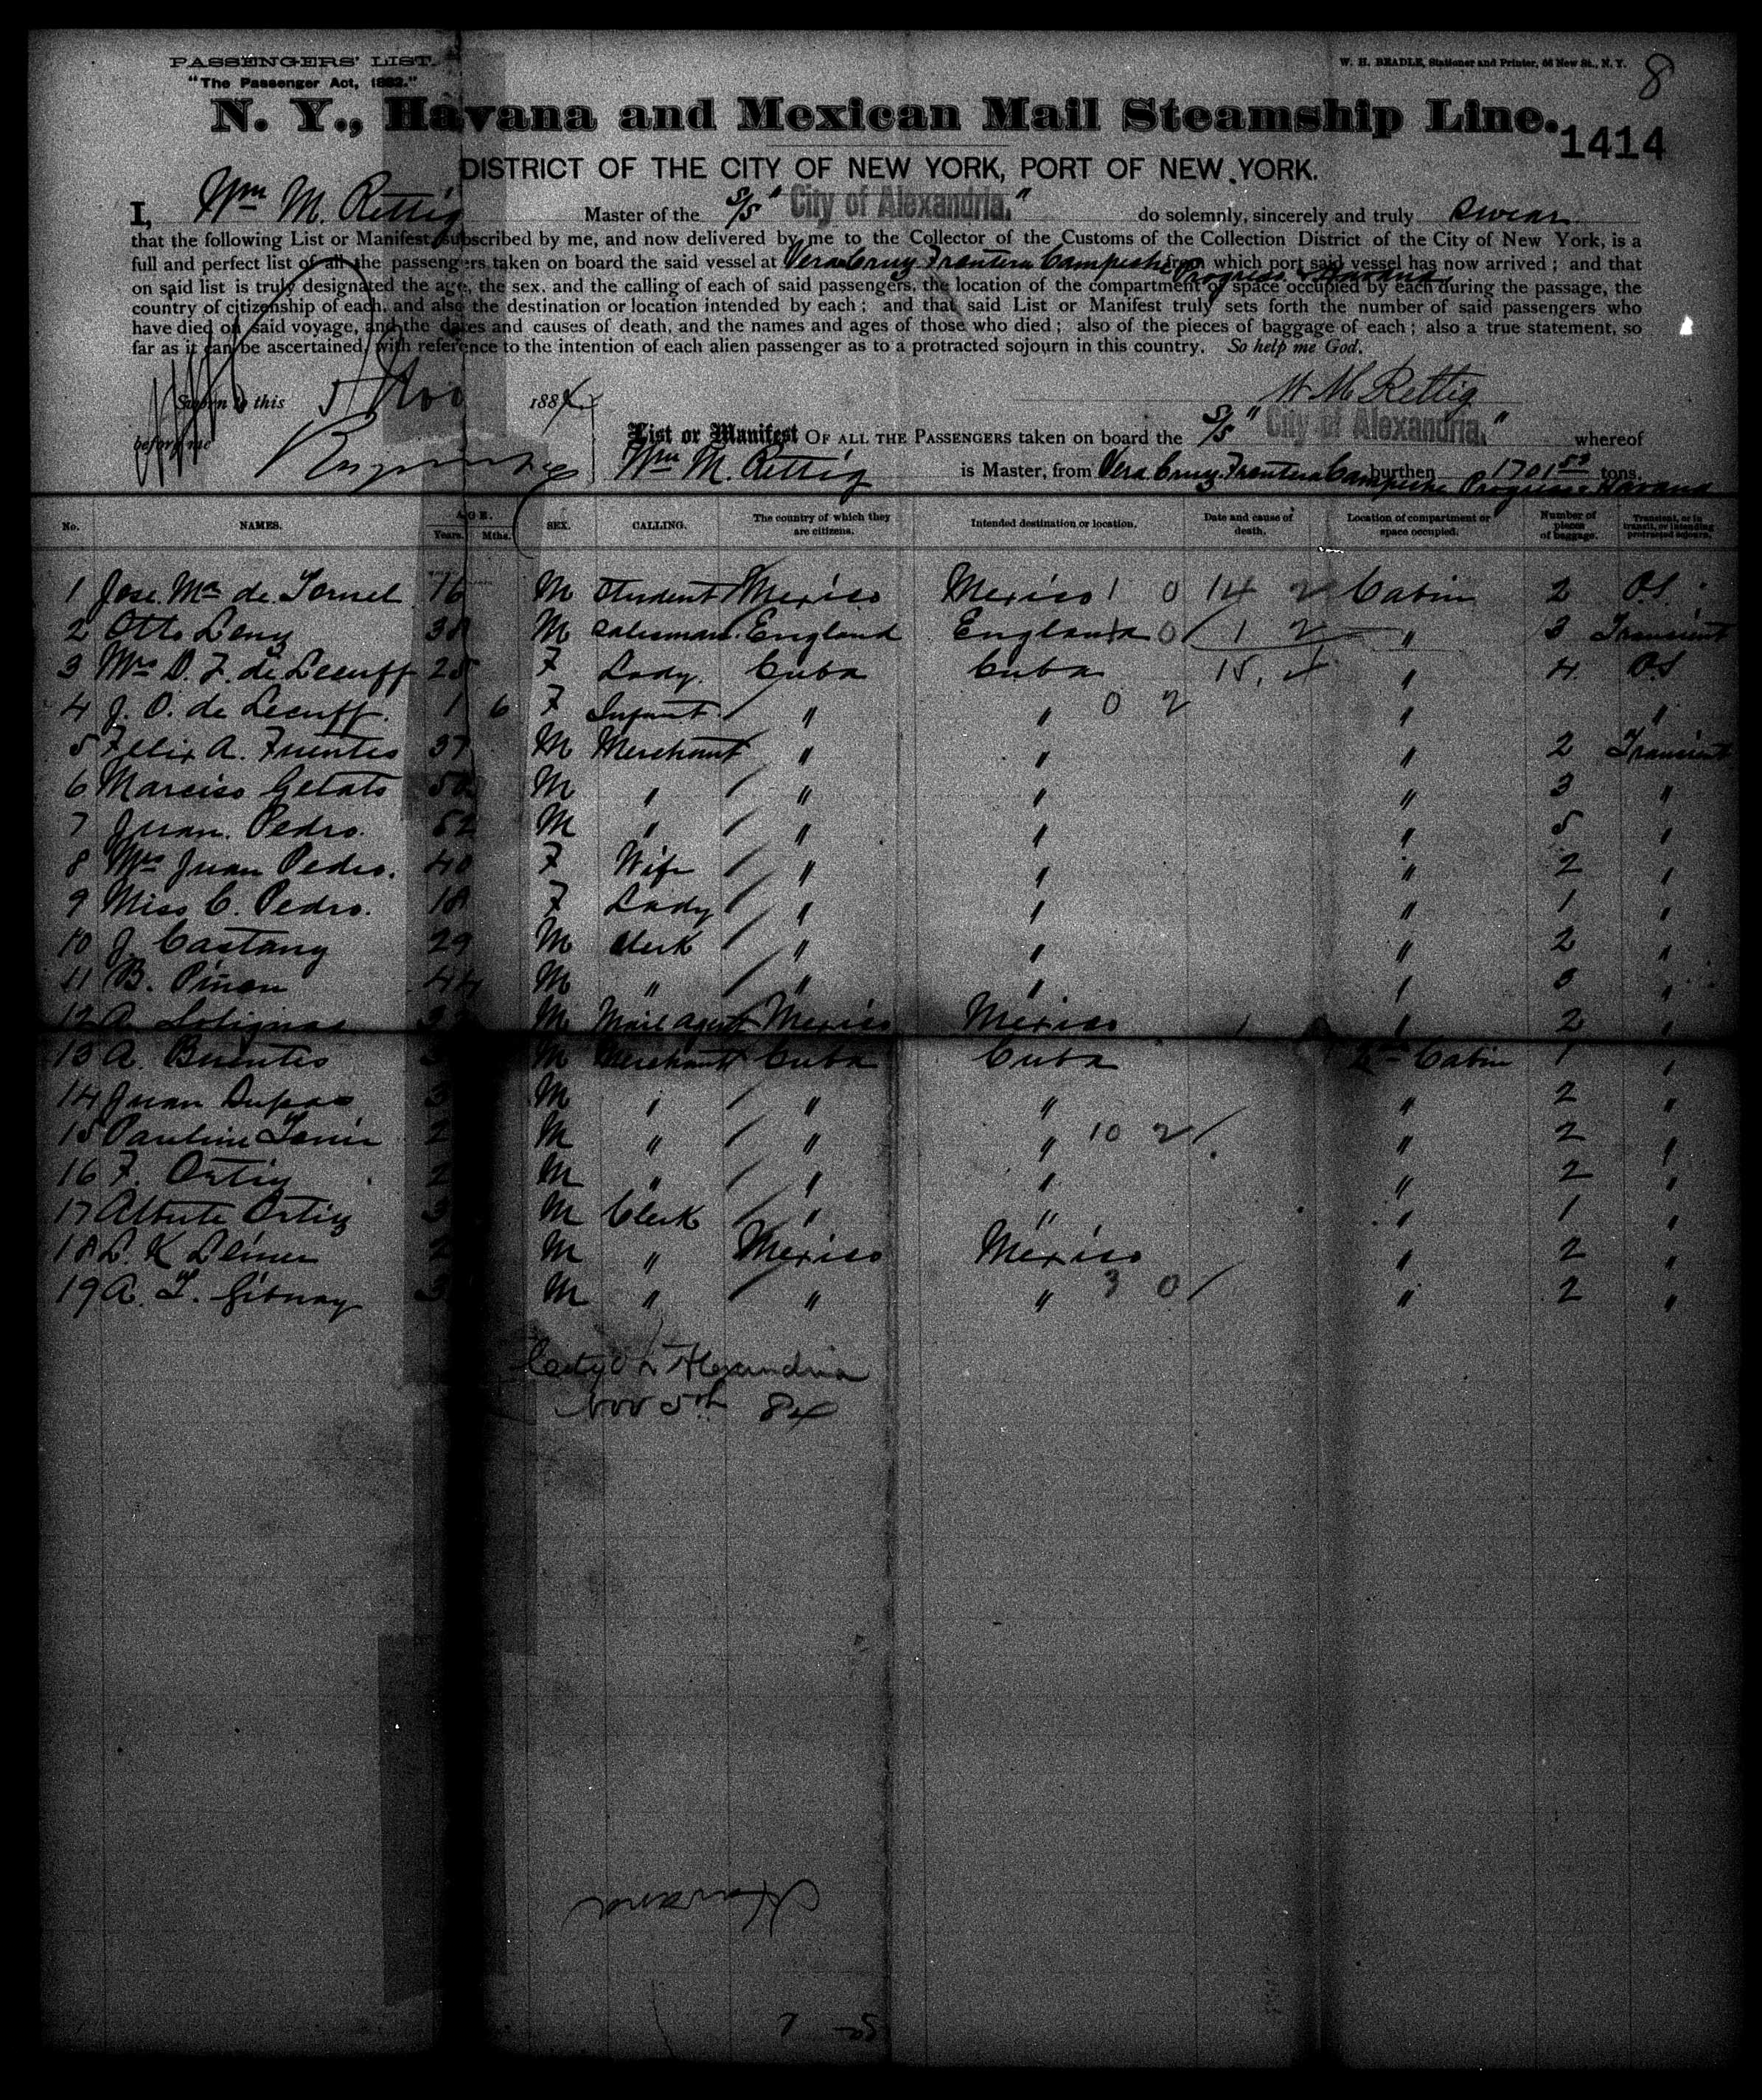 PASSENGERS' LIST.
"The Passenger Act, 1882."
W. H. BEADLE, Stationer and Printer, 66 New St., N. Y.
8
N. Y., Havana and Mexican Mail Steamship Line.
1414
DISTRICT OF THE CITY OF NEW YORK, PORT OF NEW YORK.
I, Wm M. Rettig Master of the S/S "City of Alexandria." do solemnly, sincerely and truly swear
that the following List or Manifest, subscribed by me, and now delivered by me to the Collector of the Customs of the Collection District of the City of New York, is a
full and perfect list of all the passengers taken on board the said vessel at Vera Cruz, Frontera Campeche Progreso & Havana from which port said vessel has now arrived; and that
on said list is truly designated the age, the sex, and the calling of each of said passengers, the location of the compartment or space occupied by each during the passage, the
country of citizenship of each, and also the destination or location intended by each; and that said List or Manifest truly sets forth the number of said passengers who
have died on said voyage, and the dates and causes of death, and the names and ages of those who died; also of the pieces of baggage of each; also a true statement, so
far as it can be ascertained, with reference to the intention of each alien passenger as to a protracted sojourn in this country. So help me God.
W M Rettig
Sworn to this 5 Nov 1884
before me
List or Manifest OF ALL THE PASSENGERS taken on board the S/S "City of Alexandria." whereof
Wm M. Rettig is Master, from Vera Cruz, Frontera Campeche Progreso & Havana burthen 1701 53 tons.
No. NAMES. AGE. Years. Mths. SEX. CALLING. The country of which they are citizens. Intended destination or location. Date and cause of death. Location of compartment or space occupied. Number of pieces of baggage. Transient, or in transit, or intending protracted sojourn.
1 Jose Ma de Tornel 16 M Student Mexico Mexico 1 0 14 2 Cabin 2 P.S.
2 Otto Leny 38 M Salesman England England 0 1 2 " 3 Transient
3 Mrs D. F. de Lecuff 25 F Lady Cuba Cuba 15, " 4 P.S
4 J. O. de Lecuff. 1 6 F Infant " " 0 2 " "
5 Felix A. Fuentes 37 M Merchant " " " 2 Transient
6 Narciso Gelats 50 M " " " " 3 "
7 Juan Pedro. 52 M " " " " 5 "
8 Mrs Juan Pedro. 40 F Wife " " " 2 "
9 Miss C. Pedro. 18 F Lady " " " 1 "
10 J. Castany 29 M Clerk " " " 2 "
11 B. Piñon 44 M " " " " "
12 A. Solignac M Mail agent Mexico Mexico " 2 "
13 A. Buentes M Merchant Cuba Cuba 2nd Cabin 1 "
14 Juan Dupas M " " " " 2 "
15 M " " " 10 2 " 2 "
16 F. Ortiz M " " " " 2 "
17 Alberte Ortiz M Clerk " " " 1 "
18 M " Mexico Mexico " 2 "
19 A. T. Gibnay M " " " 3 0 " 2 "
City of Alexandria
Nov 5th 84
Havana